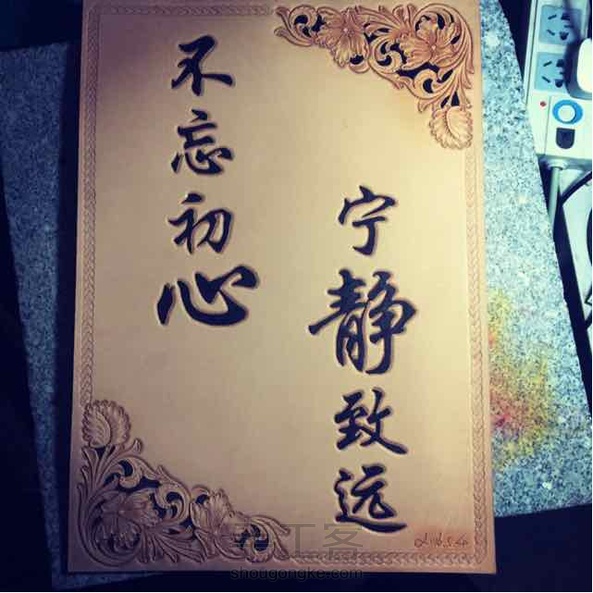 宁静致远
不忘初心
手工客
shougongke.com